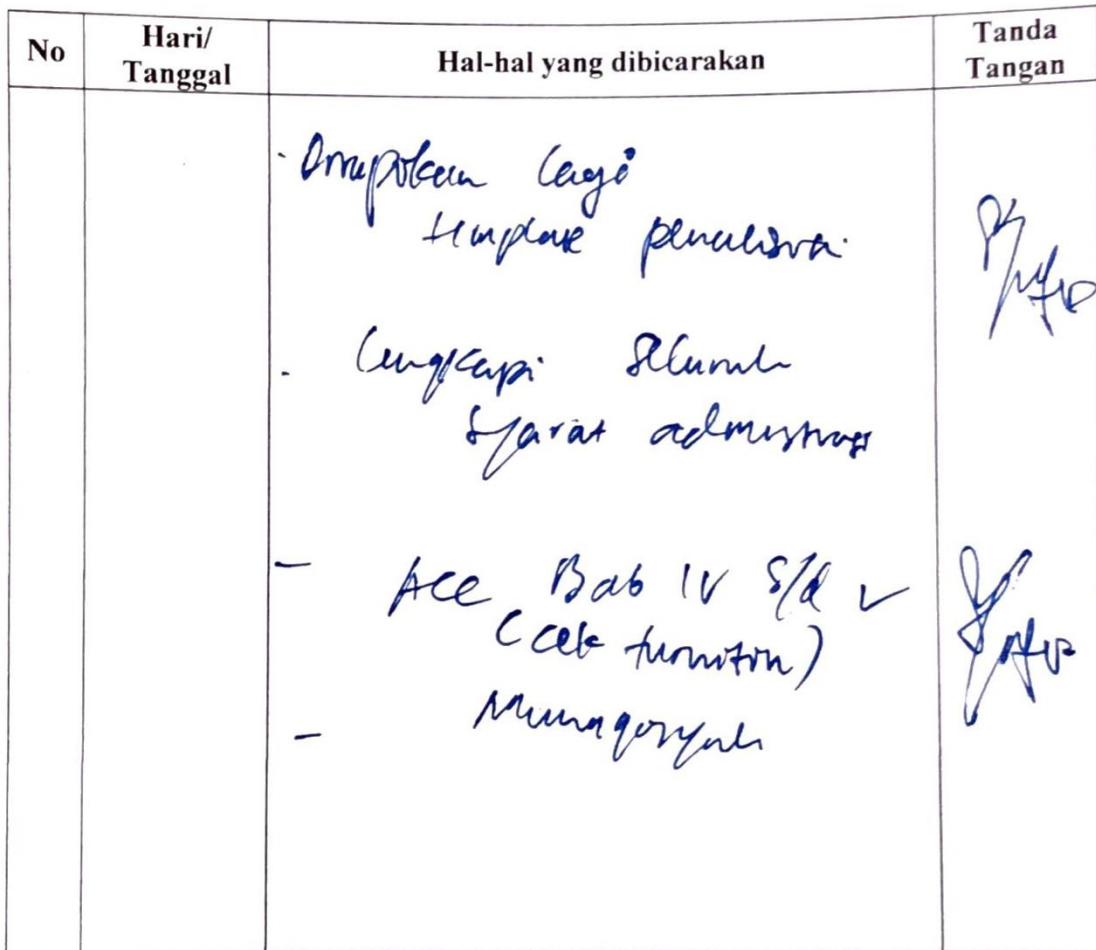 No
Hari/
Tanggal
Hal-hal yang dibicarakan
Tanda
Tangan
- Dirapikan lagi
template penulisan
- Lengkapi seluruh
syarat administrasi
- Acc Bab IV s/d V
(cek turnitin)
- Munaqosyah